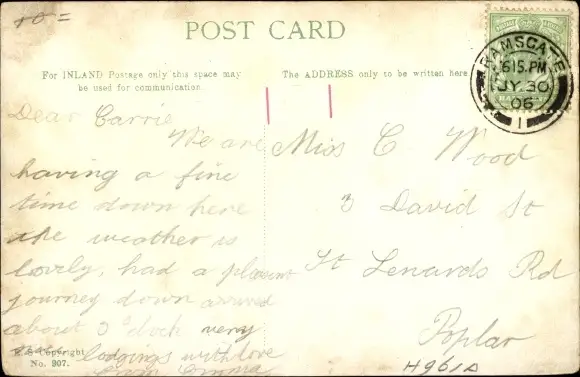 10 =
POST CARD
For INLAND Postage only this space may
be used for communication.
The ADDRESS only to be written here
RAMSGATE
615.PM
JY.30
06
1
Dear Carrie
We are
having a fine
time down here
the weather is
lovely, had a pleasant
journey down arrived
about 3 o'clock very
lodgings with love
from Emma
Miss C. Wood
3 David St
St Lenards Rd
Poplar
Copyright
No. 907.